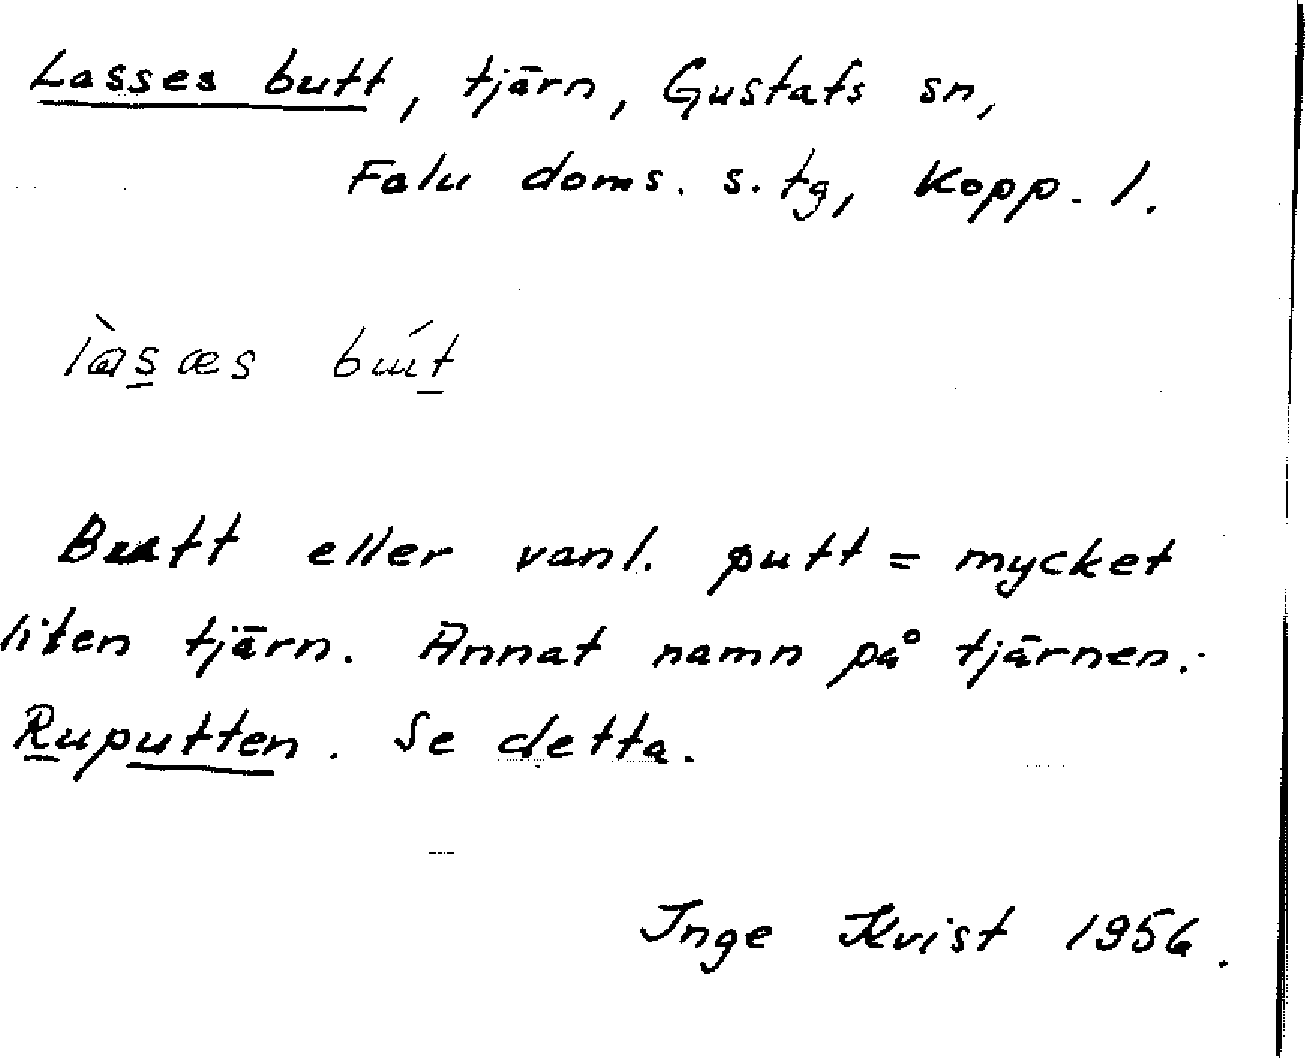 Lasses butt, tjärn, Gustafs sn,
Falu doms. s. tg, Kopp. l.
làsæs bɯ́t
Butt eller vanl. putt = mycket
liten tjärn. Annat namn på tjärnen:
Ruputten. Se detta.
Inge Kvist 1956.